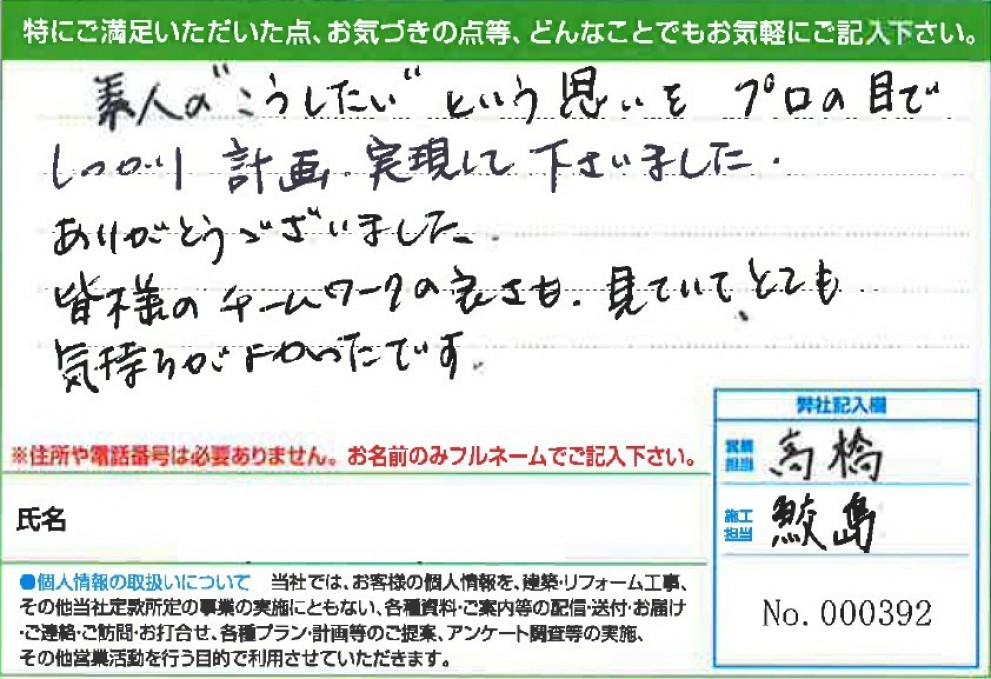 特にご満足いただいた点、お気づきの点等、どんなことでもお気軽にご記入下さい。
素人の"こうしたい"という思いを プロの目で
しっかり計画、実現して下さいました.
ありがとうございました.
皆様のチームワークの良さも、見ていて、とても
気持ちがよかったです.
※住所や電話番号は必要ありません。お名前のみフルネームでご記入下さい。
氏名
●個人情報の取扱いについて 当社では、お客様の個人情報を、建築・リフォーム工事、
その他当社定款所定の事業の実施にともない、各種資料・ご案内等の配信・送付・お届け
・ご連絡・ご訪問・お打合せ、各種プラン・計画等のご提案、アンケート調査等の実施、
その他営業活動を行う目的で利用させていただきます。
弊社記入欄
営業担当 高橋
施工担当 鮫島
No. 000392